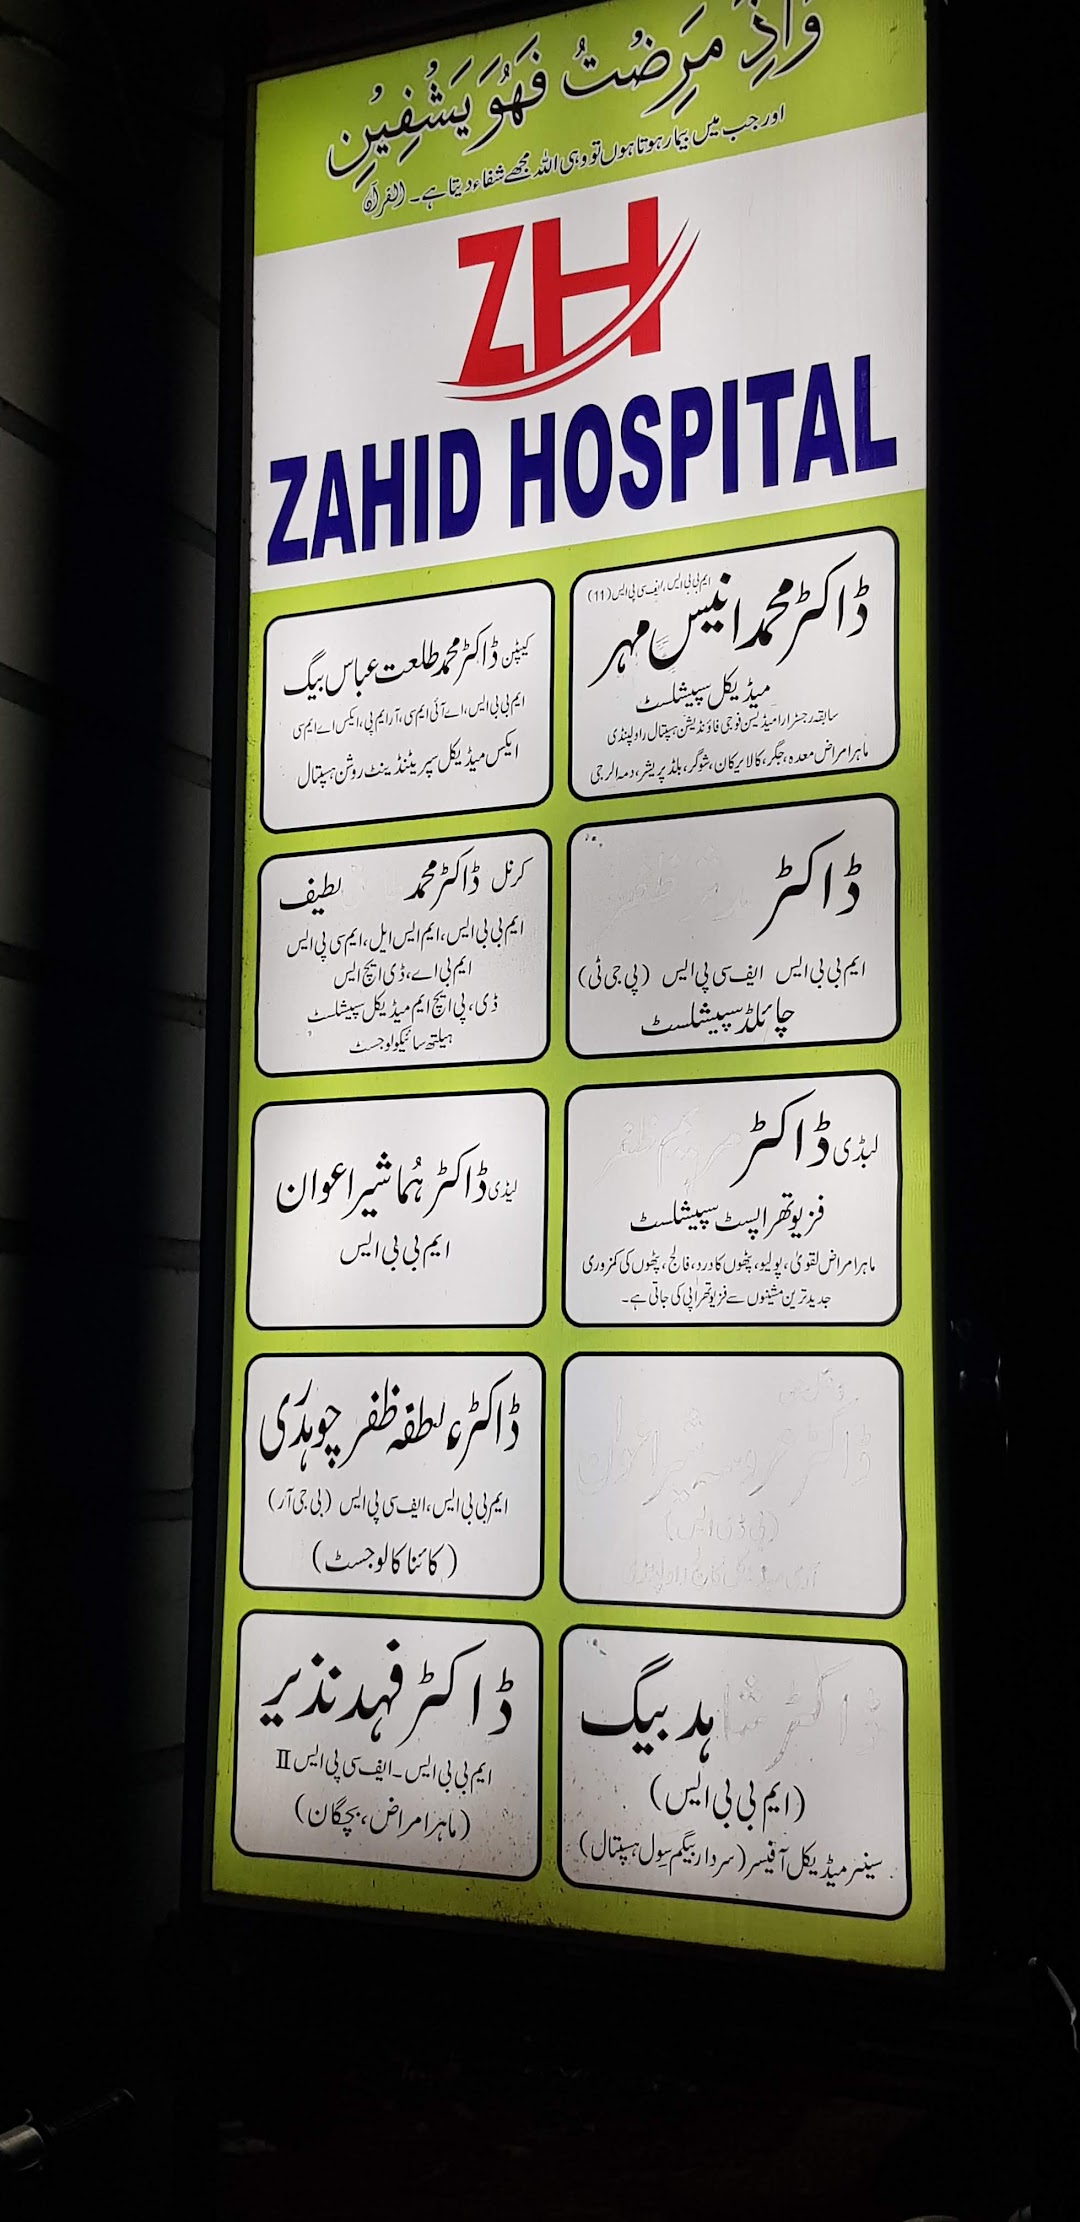 وَاِذَ مَرِضْتُ فَهُوَ يَشْفِيْنِ
اور جب میں بیمار ہوتا ہوں تو وہی اللہ مجھے شفاء دیتا ہے۔ القرآن
ZH
ZAHID HOSPITAL
ایم بی بی ایس، ایف سی پی ایس (11)
ڈاکٹر محمد انیس مہر
میڈیکل سپیشلسٹ
سابقہ رجسٹرار میڈیسن فوجی فاؤنڈیشن ہسپتال راولپنڈی
ماہر امراض معدہ، جگر، کالا یرکان، شوگر، بلڈ پریشر، دمہ الرجی
کیپٹن ڈاکٹر محمد طلعت عباس بیگ
ایم بی بی ایس، اے آئی ایم سی، آر ایم پی، ایکس اے ایم سی
ایکس میڈیکل سپریٹنڈینٹ روشن ہسپتال
ڈاکٹر
ایم بی بی ایس ایف سی پی ایس (پی جی ٹی)
چائلڈ سپیشلسٹ
کرنل ڈاکٹر محمد لطیف
ایم بی بی ایس، ایم ایس ایل، ایم سی پی ایس
ایم بی اے، ڈی ایچ ایس
ڈی، پی ایچ ایم میڈیکل سپیشلسٹ
ہیلتھ سائیکولوجسٹ
لیڈی ڈاکٹر مریم ظفر
فزیوتھراپسٹ سپیشلسٹ
ماہر امراض لقویٰ، پولیو، پٹھوں کا درد، فالج، پٹھوں کی کمزوری
جدید ترین مشینوں سے فزیوتھراپی کی جاتی ہے۔
لیڈی ڈاکٹر ہُما شیر اعوان
ایم بی بی ایس
ڈاکٹر شیر اعوان
(بی ڈی ایس)
ڈاکٹر عاطفہ ظفر چوہدری
ایم بی بی ایس، ایف سی پی ایس (بی جی آر)
(گائنا کالوجسٹ)
ڈاکٹر شاہد بیگ
(ایم بی بی ایس)
سینئر میڈیکل آفیسر (سردار بیگم سِول ہسپتال)
ڈاکٹر فہد نذیر
ایم بی بی ایس۔ ایف سی پی ایس II
(ماہر امراض، بچگان)